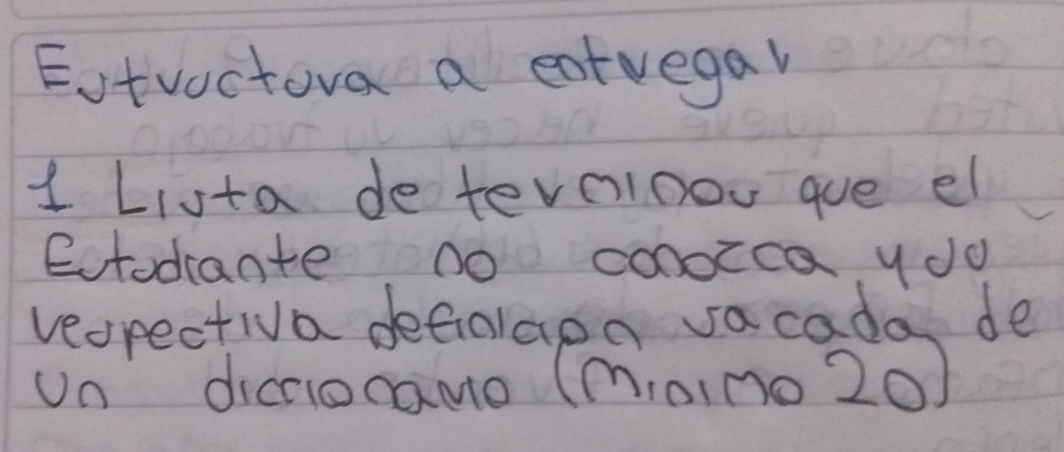 Estructura a entregar
1 Lista de terminos que el
Estudiante no conozca y su
respectiva definicion sacada de
un diccionario (Minimo 20)